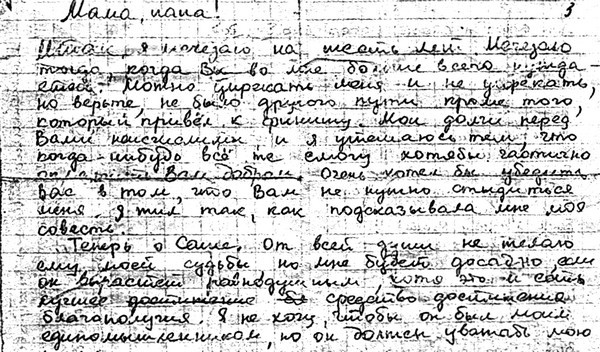 Мама, папа! 3
Итак, я исчезаю на шесть лет. Исчезаю
тогда, когда Вы во мне больше всего нужда-
етесь. Можно упрекать меня и не упрекать,
но верьте, не было другого пути кроме того,
который привёл к финишу. Мои долги перед
Вами неисчислимы, и я утешаюсь тем, что
когда-нибудь всё же смогу хотябы частично
Вам добром. Очень хотел бы убедить
Вас в том, что Вам не нужно стыдиться
меня. Я жил так, как подсказывала мне моя
совесть.
Теперь о Саше. От всей души не желаю
ему моей судьбы но мне будет досадно если
он вырастет равнодушным, хотя это и есть
лучшее достижение средство достижения
благополучия. Я не хочу, чтобы он был моим
единомышленником, но он должен уважать мою